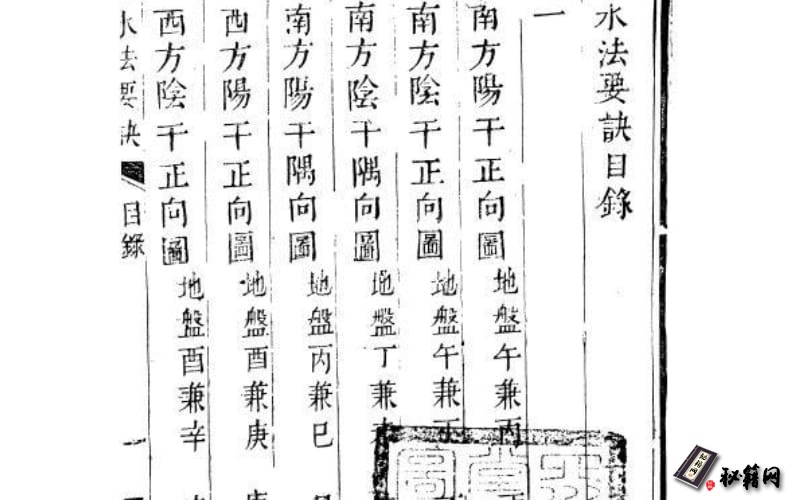 水法要訣目錄
一
南方陽干正向圖 地盤午兼丙
南方陰干正向圖 地盤午兼丁
南方陰干隅向圖 地盤丁兼
南方陽干隅向圖 地盤丙兼巳
西方陽干正向圖 地盤酉兼庚
西方陰干正向圖 地盤酉兼辛
水法要訣 目錄 一
秘籍网